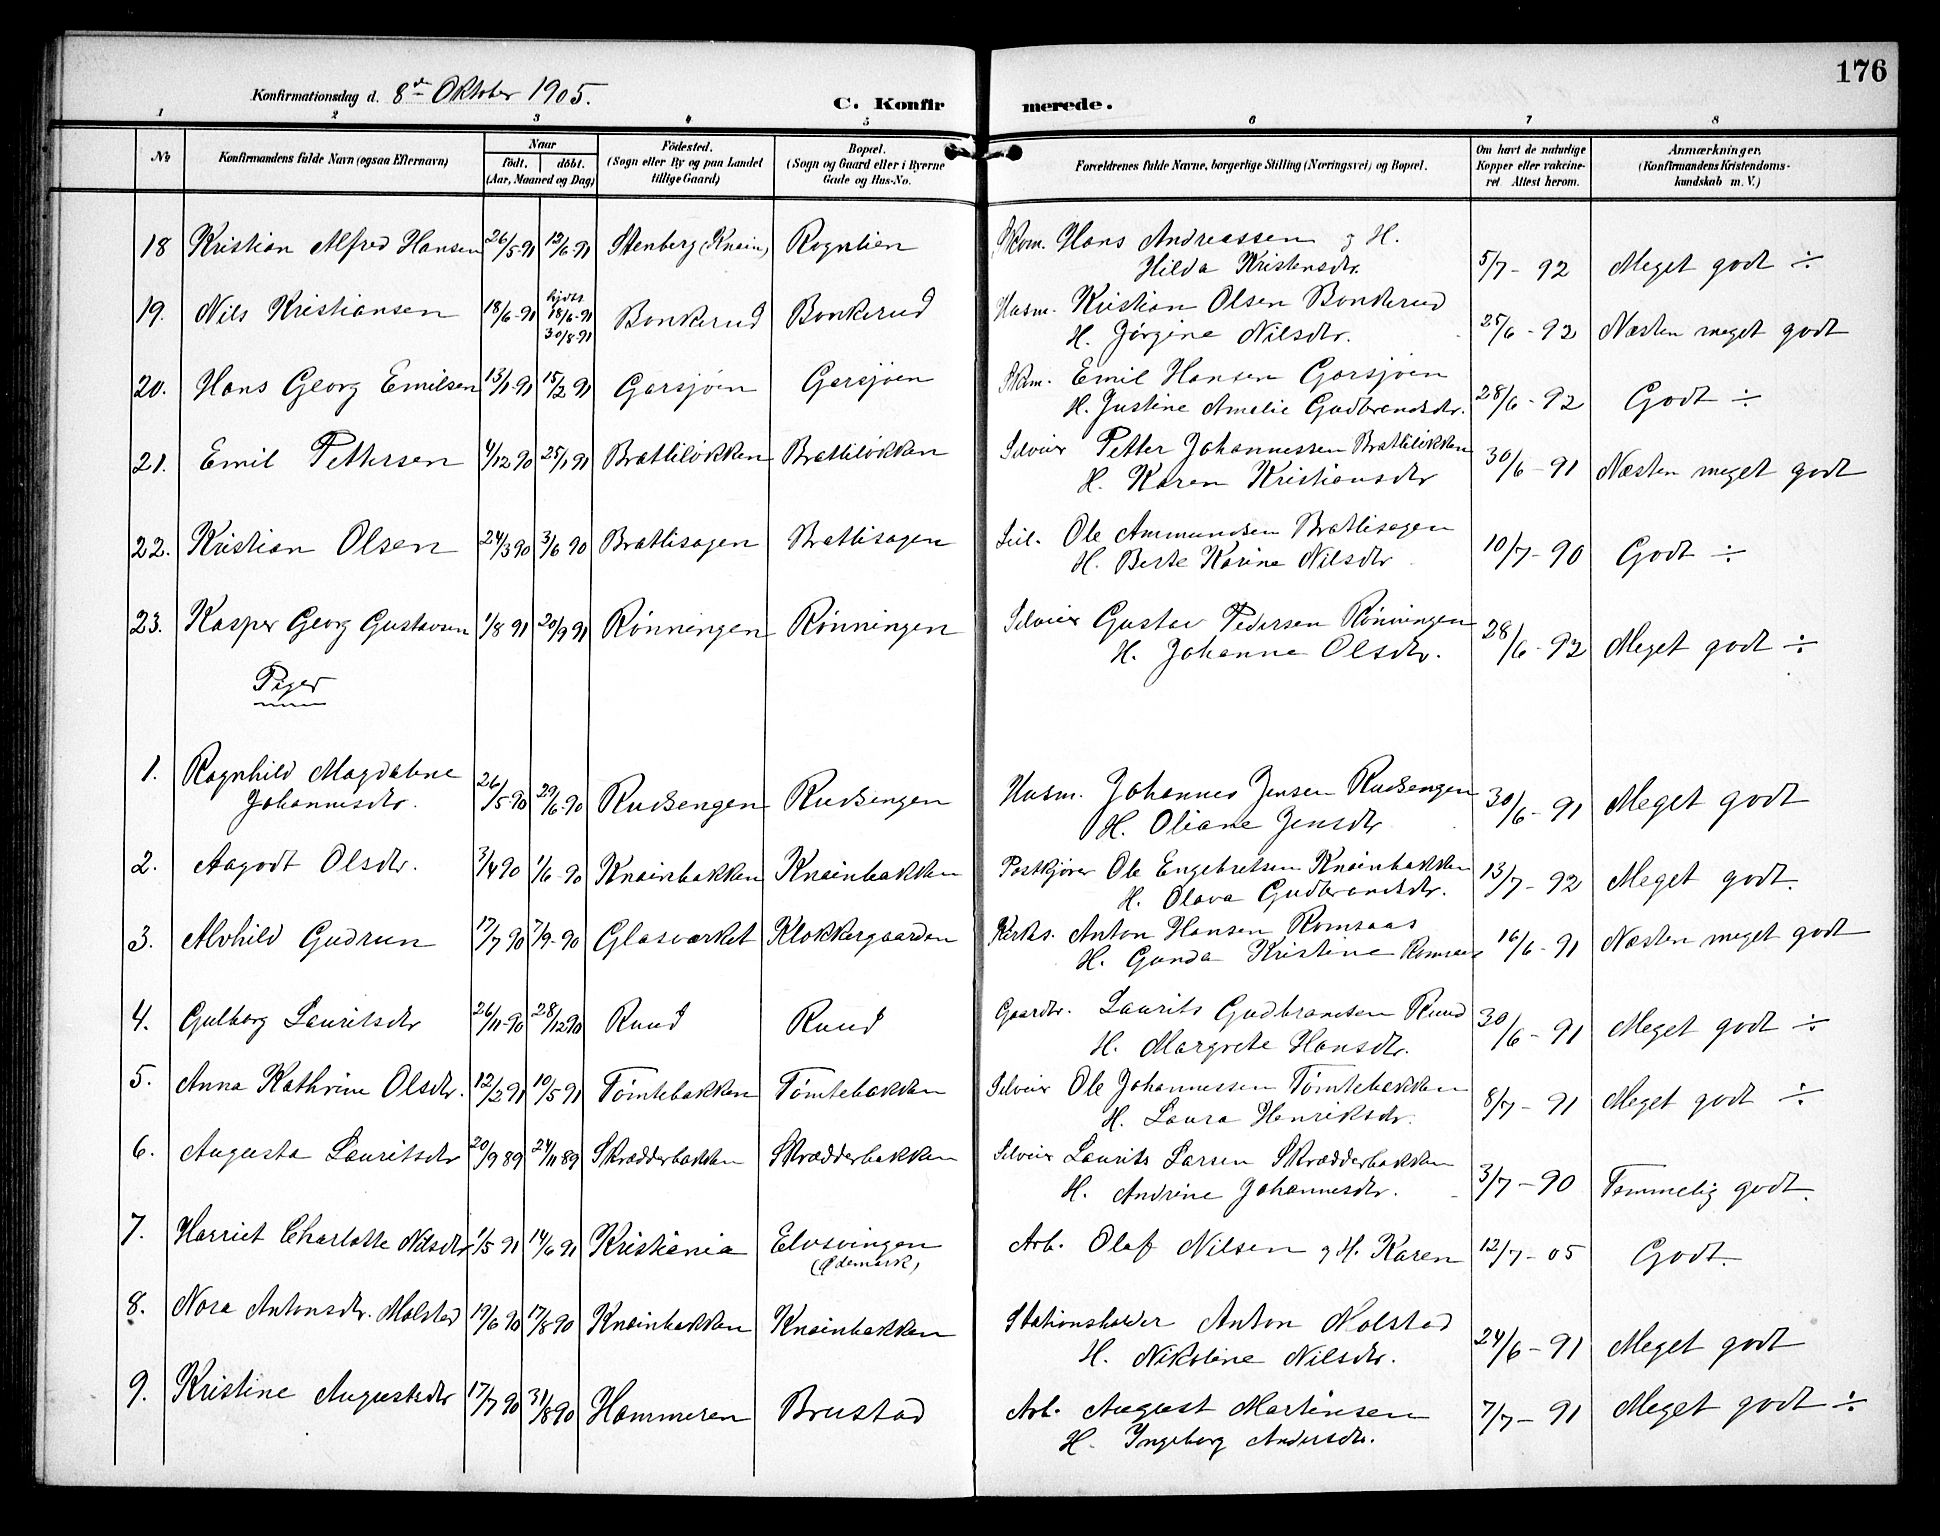 176
Konfirmationsdag d. 8de Oktober 1905.
C. Konfirmerede.
1 2 3 4 5 6 7 8
No Konfirmandens fulde Navn (ogsaa Efternavn) Naar født. døbt. (Aar, Maaned og Dag) Födested. (Sogn eller By og paa Landet tillige Gaard) Bopæl. (Sogn og Gaard eller i Byerne Gade og Hus-No. Forældrenes fulde Navne, borgerlige Stilling (Næringsvei) og Bopæl. Om havt de naturlige Kopper eller vakcineret. Attest herom. Anmærkninger, (Konfirmandens Kristendomskundskab m. V.)
18 Kristian Alfred Hansen 26/5-91 12/6-91 Stenberg (Knain) Rognlien Skom. Hans Andreassen og H.
Hilda Kristensdtr. 5/7-92 Meget godt ÷
19. Nils Kristiansen 18/6-91 hjdbt. 18/6-91 30/8-91 Bonkerud Bonkerud Husm. Kristian Olsen Bonkerud
H. Jørgine Nilsdtr. 25/6-92 Næsten meget godt
20. Hans Georg Emilsen 13/1-91 15/2 91 Garsjøen Garsjøen Skom. Emil Hansen Garsjøen
H. Justine Amalie Gudbrandsdtr. 28/6-92 Godt ÷
21. Emil Pettersen 4/12 90 25/1 91 Brattiløkken Brattiløkken Selveier Petter Johannessen Brattiløkken
H. Karen Kristiansdtr 30/6-91 Næsten meget godt
22. Kristian Olsen 24/3 90 3/6 90 Brattisagen Brattisagen Sel. Ole Ammundsen Brattisagen
H. Berte Karine Nilsdtr 10/7-90 Godt ÷
23. Kasper Georg Gustavsen 1/8 91 20/9 91 Rønningen Rønningen Selveier Gustav Pedersen Rønningen
H. Johanna Olsdtr. 28/6-92 Meget godt ÷
Piger
1. Ragnhild Magdalene
Johannesdtr. 26/5-90 29/6-90 Rudsengen Rudsengen Husm. Johannes Jensen Rudsengen
H. Oliane Jensdtr 30/6-91 Meget godt
2. Aagodt Olsdtr. 3/4 90 1/6-90 Knainbakken Knainbakken Postkjører Ole Engebretsen Knainbakken
H. Olava Gudbrandsdtr. 13/7-92 Meget godt.
3. Alvhild Gudrun 17/7 90 7/9-90 Glasværket Klokkergaarden Kirkes. Anton Hansen Romsaas
H. Gunda Kristine Romsaas 16/6-91 Næsten meget godt
4. Gulborg Lauritsdtr 26/11-90 28/12 90 Ruud Ruud Gaardbr. Laurits Gudbrandsen Ruud
H. Margrete Hansdtr. 30/6-91 Meget godt ÷
5. Anna Kathrine Olsdtr. 12/2 91 10/5 91 Tømtebakken Tømtebakken Selveier Ole Johannessen Tømtebakken
H. Laura Henriksdtr. 8/7-91 Meget godt ÷
6. Augusta Lauritsdtr 20/9 89 24/11 89 Skrædderbakken Skrædderbakken Selveier Laurits Larsen Skrædderbakken
H. Andrine Johannesdtr. 3/7-90 Temmelig godt.
7. Harriet Charlotte Nilsdtr 1/5 91 14/6 91 Kristiania Elvsvingen
(Ødemark) Arb. Olaf Nilsen og H. Karen 12/7-05 Godt.
8. Nora Antonsdtr. Molstad 19/6 90 17/8 90 Knainbakken Knainbakken Stationsholder Anton Molstad
H. Nikoline Nilsdtr. 24/6-91 Meget godt
9. Kristine Augustsdtr 17/7 90 31/8 90 Hammeren Brustad Arb. August Martinsen
H. Ingeborg Andersdtr. 7/7-91 Meget godt ÷